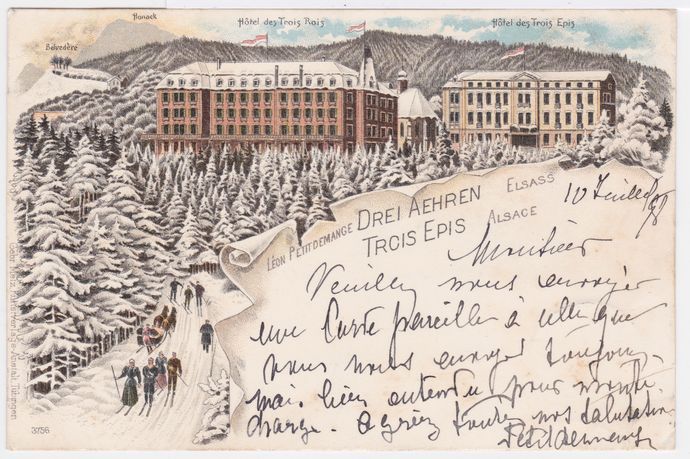 Hôtel des Trois Rois
Hôtel des Trois Epis
Honack
Belvedère
DREI AEHREN
ELSASS
TROIS EPIS
ALSACE
LÉON PETITDEMANGE
10 Juillet 98
Monsieur
Veuillez nous envoyer
une Carte pareille à celle que
vous nous envoyez toujours
mais bien entendu pour notre
charge. Agréez toutes nos salutations
Petitdemange
3756